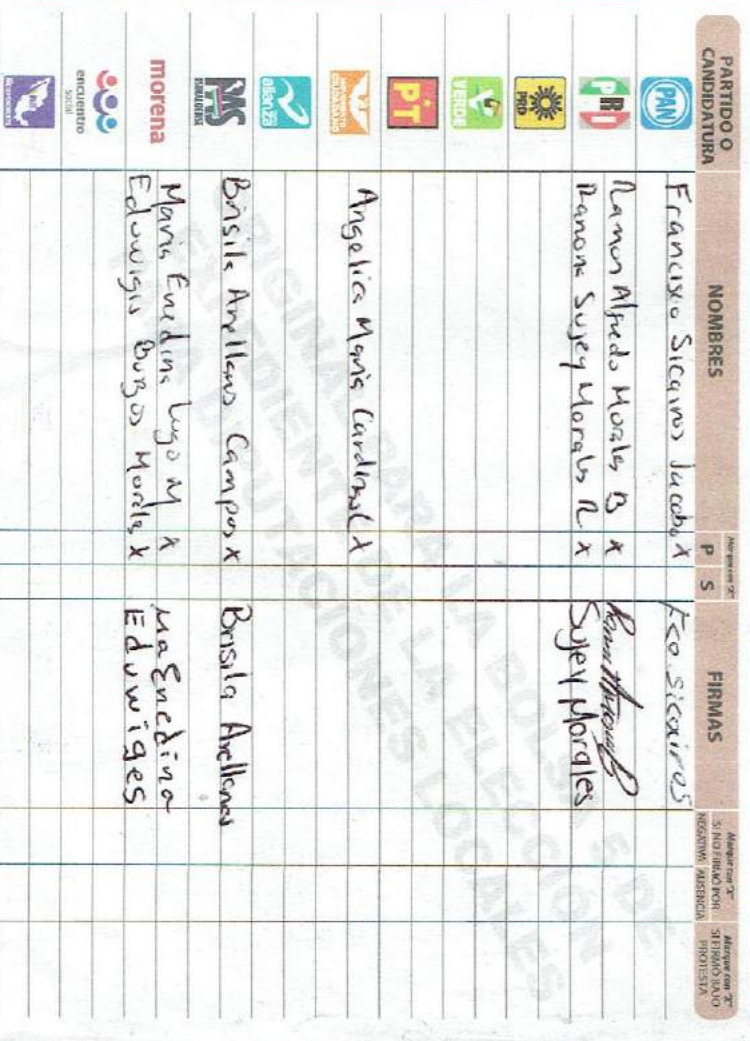 PARTIDO O
CANDIDATURA
NOMBRES
Marque con "X"
P S
FIRMAS
Marque con "X"
SI NO FIRMÓ POR
NEGATIVA AUSENCIA
Marque con "X"
SI FIRMÓ BAJO
PROTESTA
PAN Francisco Sicairos Jacobo X Fco. Sicairos
PRI
Ramon Alfredo Morales B X
Ramona Sujey Morales R. X Sujey Morales
PRD
VERDE
PT
MOVIMIENTO
CIUDADANO
Angelica Maria Cardizal X
alianza
PAS
SINALOENSE
Brisila Arellanes Campos X Brisila Arellanes
morena
Maria Enedina Lugo M X Ma Enedina
Eduwigis Burgos Morales X Eduwiges
encuentro
social
INDEPENDIENTE
ORIGINAL PARA LA BOLSA S DE
EXPEDIENTE DE LA ELECCIÓN
PARA DIPUTACIONES LOCALES